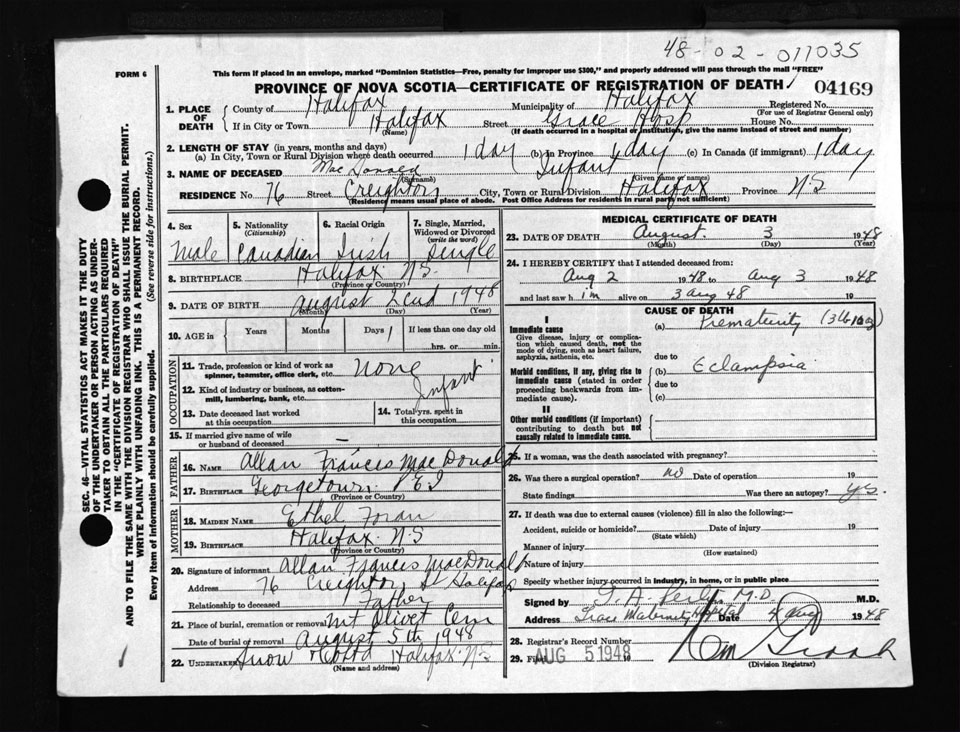 48-02-011035
FORM 6
This form if placed in an envelope, marked "Dominion Statistics—Free, penalty for improper use $300," and properly addressed will pass through the mail "FREE"
PROVINCE OF NOVA SCOTIA—CERTIFICATE OF REGISTRATION OF DEATH
04169
1. PLACE OF DEATH
County of Halifax Municipality of Halifax Registered No.
(For use of Registrar General only)
If in City or Town Halifax Street Grace Hosp House No.
(Name) (If death occurred in a hospital or institution, give the name instead of street and number)
2. LENGTH OF STAY (in years, months and days)
(a) In City, Town or Rural Division where death occurred 1 day (b) In Province 1 day (c) In Canada (if immigrant) 1 day
3. NAME OF DECEASED Mac Donald Infant
(Surname) (Given name or names)
RESIDENCE No. 76 Street Creighton City, Town or Rural Division Halifax Province N.S
(Residence means usual place of abode. Post Office Address for residents in rural parts not sufficient)
4. Sex Male
5. Nationality (Citizenship) Canadian
6. Racial Origin Irish
7. Single, Married, Widowed or Divorced (write the word) Single
8. BIRTHPLACE Halifax N.S.
(Province or Country)
9. DATE OF BIRTH August 2nd 1948
(Month) (Day) (Year)
10. AGE in Years Months Days 1 If less than one day old
hrs. or min.
OCCUPATION
11. Trade, profession or kind of work as spinner, teamster, office clerk, etc. None
12. Kind of industry or business, as cotton-mill, lumbering, bank, etc. Infant
13. Date deceased last worked at this occupation
14. Total yrs. spent in this occupation
15. If married give name of wife or husband of deceased —
FATHER
16. NAME Allan Frances MacDonald
17. BIRTHPLACE Georgetown P.E.I
(Province or Country)
MOTHER
18. MAIDEN NAME Ethel Foran
19. BIRTHPLACE Halifax N.S
(Province or Country)
20. Signature of informant Allan Frances MacDonald
Address 76 Creighton St Halifax
Relationship to deceased Father
21. Place of burial, cremation or removal Mt Olivet Cem
Date of burial or removal August 5th 1948
22. UNDERTAKER Snow Halifax N.S
(Name and address)
MEDICAL CERTIFICATE OF DEATH
23. DATE OF DEATH August 3 1948
(Month) (Day) (Year)
24. I HEREBY CERTIFY that I attended deceased from:
Aug 2 1948 to Aug 3 1948
and last saw him alive on 3 Aug 48 19
CAUSE OF DEATH
I
Immediate cause
Give disease, injury or complication which caused death, not the mode of dying, such as heart failure, asphyxia, asthenia, etc.
(a) Prematurity
due to
Morbid conditions, if any, giving rise to immediate cause (stated in order proceeding backwards from immediate cause).
(b) Eclampsia
due to
(c)
II
Other morbid conditions (if important) contributing to death but not causally related to immediate cause.
25. If a woman, was the death associated with pregnancy?
26. Was there a surgical operation? no Date of operation 19
State findings Was there an autopsy? yes.
27. If death was due to external causes (violence) fill in also the following:—
Accident, suicide or homicide? Date of injury 19
(State which)
Manner of injury
(How sustained)
Nature of injury
Specify whether injury occurred in industry, in home, or in public place
Signed by M.D. M.D.
Address Grace Maternity Hospital Date 4 Aug 1948
28. Registrar's Record Number
29. Filed AUG 5 1948 19
(Division Registrar)
SEC. 46—VITAL STATISTICS ACT MAKES IT THE DUTY
OF THE UNDERTAKER OR PERSON ACTING AS UNDERTAKER TO OBTAIN ALL THE PARTICULARS REQUIRED
IN THE "CERTIFICATE OF REGISTRATION OF DEATH"
AND TO FILE THE SAME WITH THE DIVISION REGISTRAR WHO SHALL ISSUE THE BURIAL PERMIT.
WRITE PLAINLY WITH UNFADING INK. THIS IS A PERMANENT RECORD.
Every item of information should be carefully supplied. (See reverse side for instructions.)